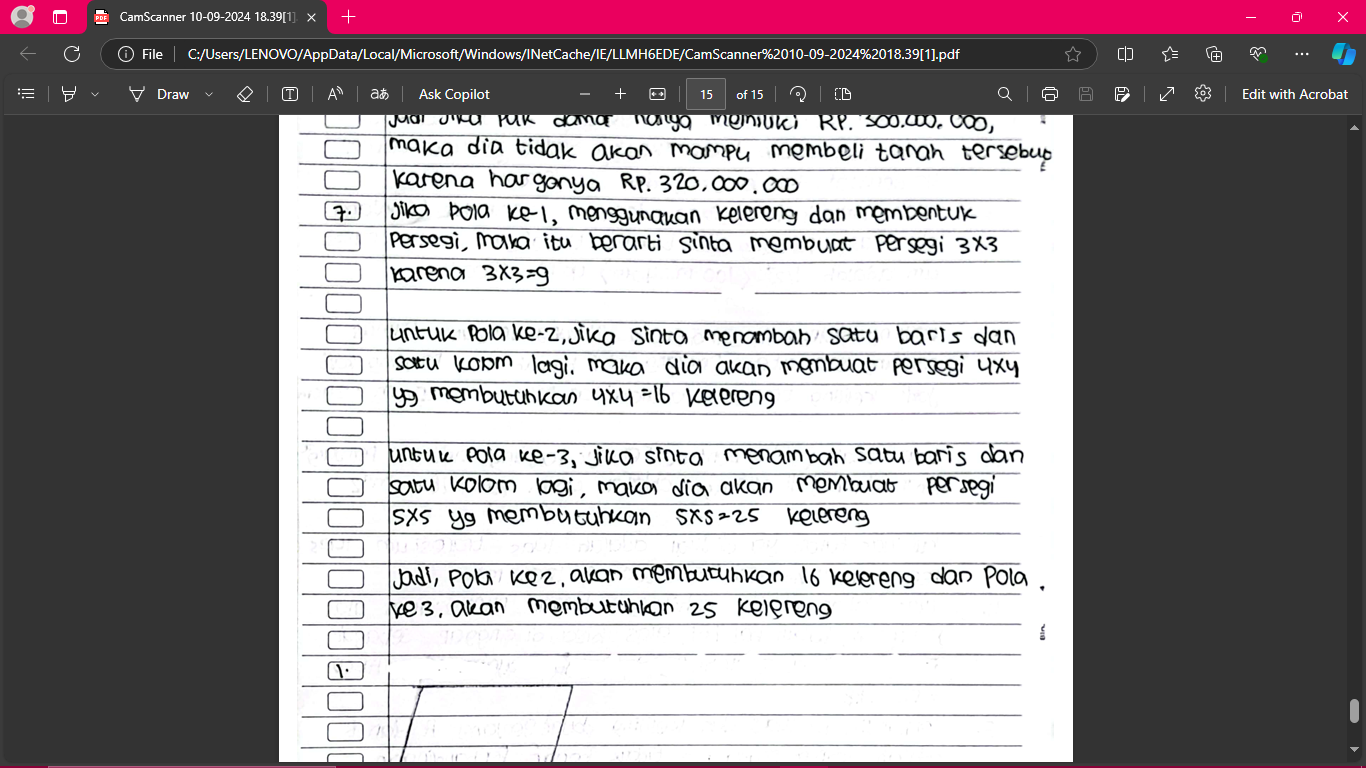 CamScanner 10-09-2024 18.39[1].
File
C:/Users/LENOVO/AppData/Local/Microsoft/Windows/INetCache/IE/LLMH6EDE/CamScanner%2010-09-2024%2018.39[1].pdf
Draw
Ask Copilot
15 of 15
Edit with Acrobat
Jadi Jika Pak damar hanya memiliki RP. 300.000.000,
maka dia tidak akan mampu membeli tanah tersebut
karena harganya RP. 320.000.000
7. Jika Pola ke-1, menggunakan kelereng dan membentuk
Persegi, maka itu berarti sinta membuat Persegi 3x3
karena 3x3=9
untuk Pola ke-2, Jika Sinta menambah satu baris dan
satu kolom lagi. maka dia akan membuat persegi 4x4
yg membutuhkan 4x4=16 kelereng
untuk Pola ke-3, Jika sinta menambah satu baris dan
satu kolom lagi, maka dia akan membuat persegi
5x5 yg membutuhkan 5x5=25 kelereng
Jadi, Pola ke2, akan membutuhkan 16 kelereng dan Pola
ke3, akan membutuhkan 25 kelereng
1.